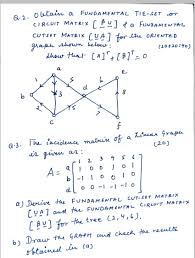 Q.2. Obtain a FUNDAMENTAL TIE-SET or
CIRCUIT MATRIX [BU] & a FUNDAMENTAL
CUTSET MATRIX [UA] for the ORIENTED
graph shown below:
Show that [A]ᵀ + [B]ᵀ = 0
a
e
b
d
c
f
Q.3. The incidence matrix of a Linear Graph
is given as: (20)
1 2 3 4 5 6
A = a
b
d
a) Derive the FUNDAMENTAL CUTSET MATRIX
[UA] and the FUNDAMENTAL CIRCUIT MATRIX
[BU] for the tree (2,4,6).
b) Draw the GRAPH and check the results
obtained in (a)